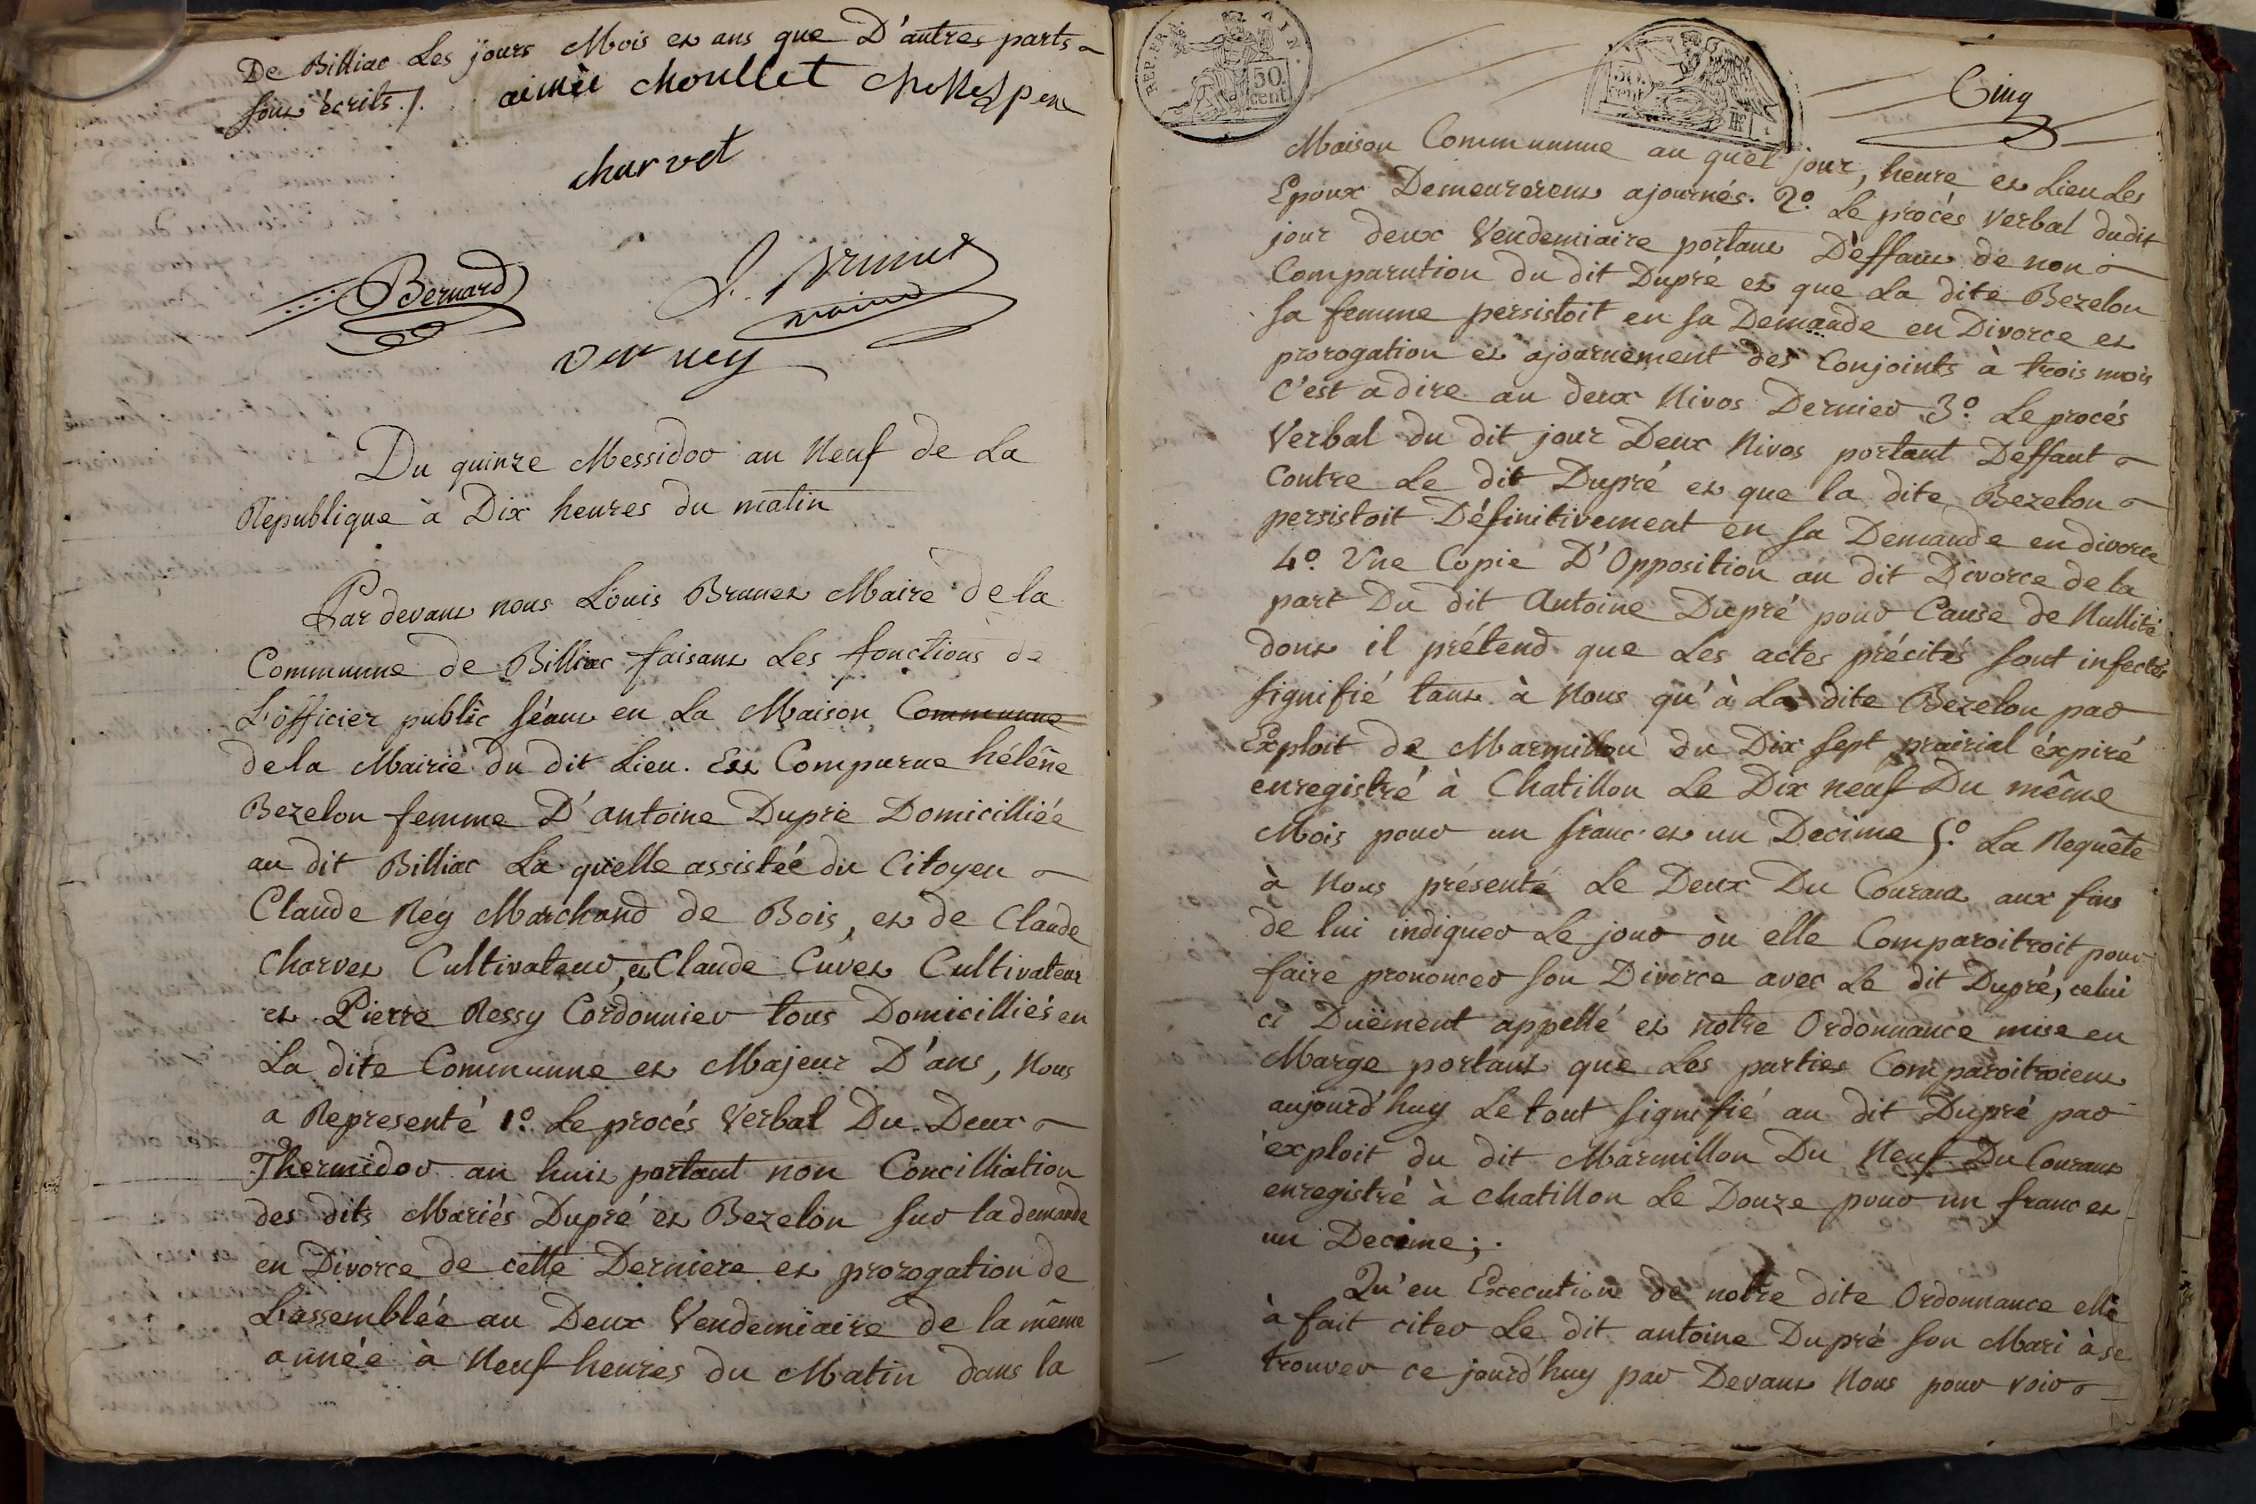 De Billiac Les jours Mois et ans que D'autres parts
sont écrits ./.
aimée choullet Chollet pere
charvet
Bernard
L. Brunet
maire
verney
Du quinze Messidor an Neuf de La
République à Dix heures du matin
Par devant nous Louis Brunet Maire de la
Communne de Billiac faisant Les fonctions de
L'officier public séant en La Maison Communne
de la Mairie du dit Lieu. Est Comparue hélène
Bezelon femme D'antoine Dupré Domicilliée
au dit Billiac La quelle assistée du Citoyen
Claude Rey Marchand de Bois, et de Claude
Charvet Cultivateur, et Claude Cuvet Cultivateur
et Pierre Ressy Cordonnier tous Domicilliés en
La dite Communne et Majeur D'ans, Nous
a Representé 1º. Le procés Verbal Du Deux
Thermidor an huit portant non Concilliation
des dits Mariés Dupré et Bezelon sur la demande
en Divorce de cette Derniere et prorogation de
L'assemblée au Deux Vendemiaire de la même
année à Neuf heures du Matin dans la
REP. FRA.
50
cent
AIN.
50
cent
Cinq
Maison Communnne au quel jour, heure et Lieu Les
Epoux Demeurerent ajournés. 2º. Le procés Verbal dudit
jour deux Vendemiaire portant Deffaut de non
Comparution du dit Dupré et que La dite Bezelon
sa femme persistoit en sa Demande en Divorce et
prorogation et ajournement des Conjoints à trois mois
C'est a dire au deux Nivos Dernier 3º. Le procés
Verbal du dit jour Deux Nivos portant Deffaut
Contre Le dit Dupré et que la dite Bezelon
persistoit Définitivement en sa Demande en divorce
4º. Une Copie D'Opposition au dit Divorce de la
part Du dit Antoine Dupré pour Cause de Nullité
dont il prétend que Les actes précités sont infectés
signifié tant à Nous qu'à La dite Bezelon par
Exploit de Marmillon du Dix sept prairial éxpiré
enregistré à Chatillon Le Dix neuf Du même
Mois pour un franc et un Decime 5º. La Requête
à Nous présenté Le Deux Du Courant aux fins
de lui indiquer Le jour où elle Comparoitroit pour
faire prononcer son Divorce avec Le dit Dupré, celui
ci Duëment appellé et notre Ordonnance mise en
Marge portant que Les parties Comparoitroient
aujourd'huy Le tout signifié au dit Dupré par
exploit du dit Marmillon Du Neuf Du Courant
enregistré à Chatillon Le Douze pour un franc et
un Decime;.
Qu'en Execution de notre dite Ordonnance elle
à fait citer Le dit antoine Dupré son Mari à se
trouver ce jourd'huy par Devant Nous pour voir